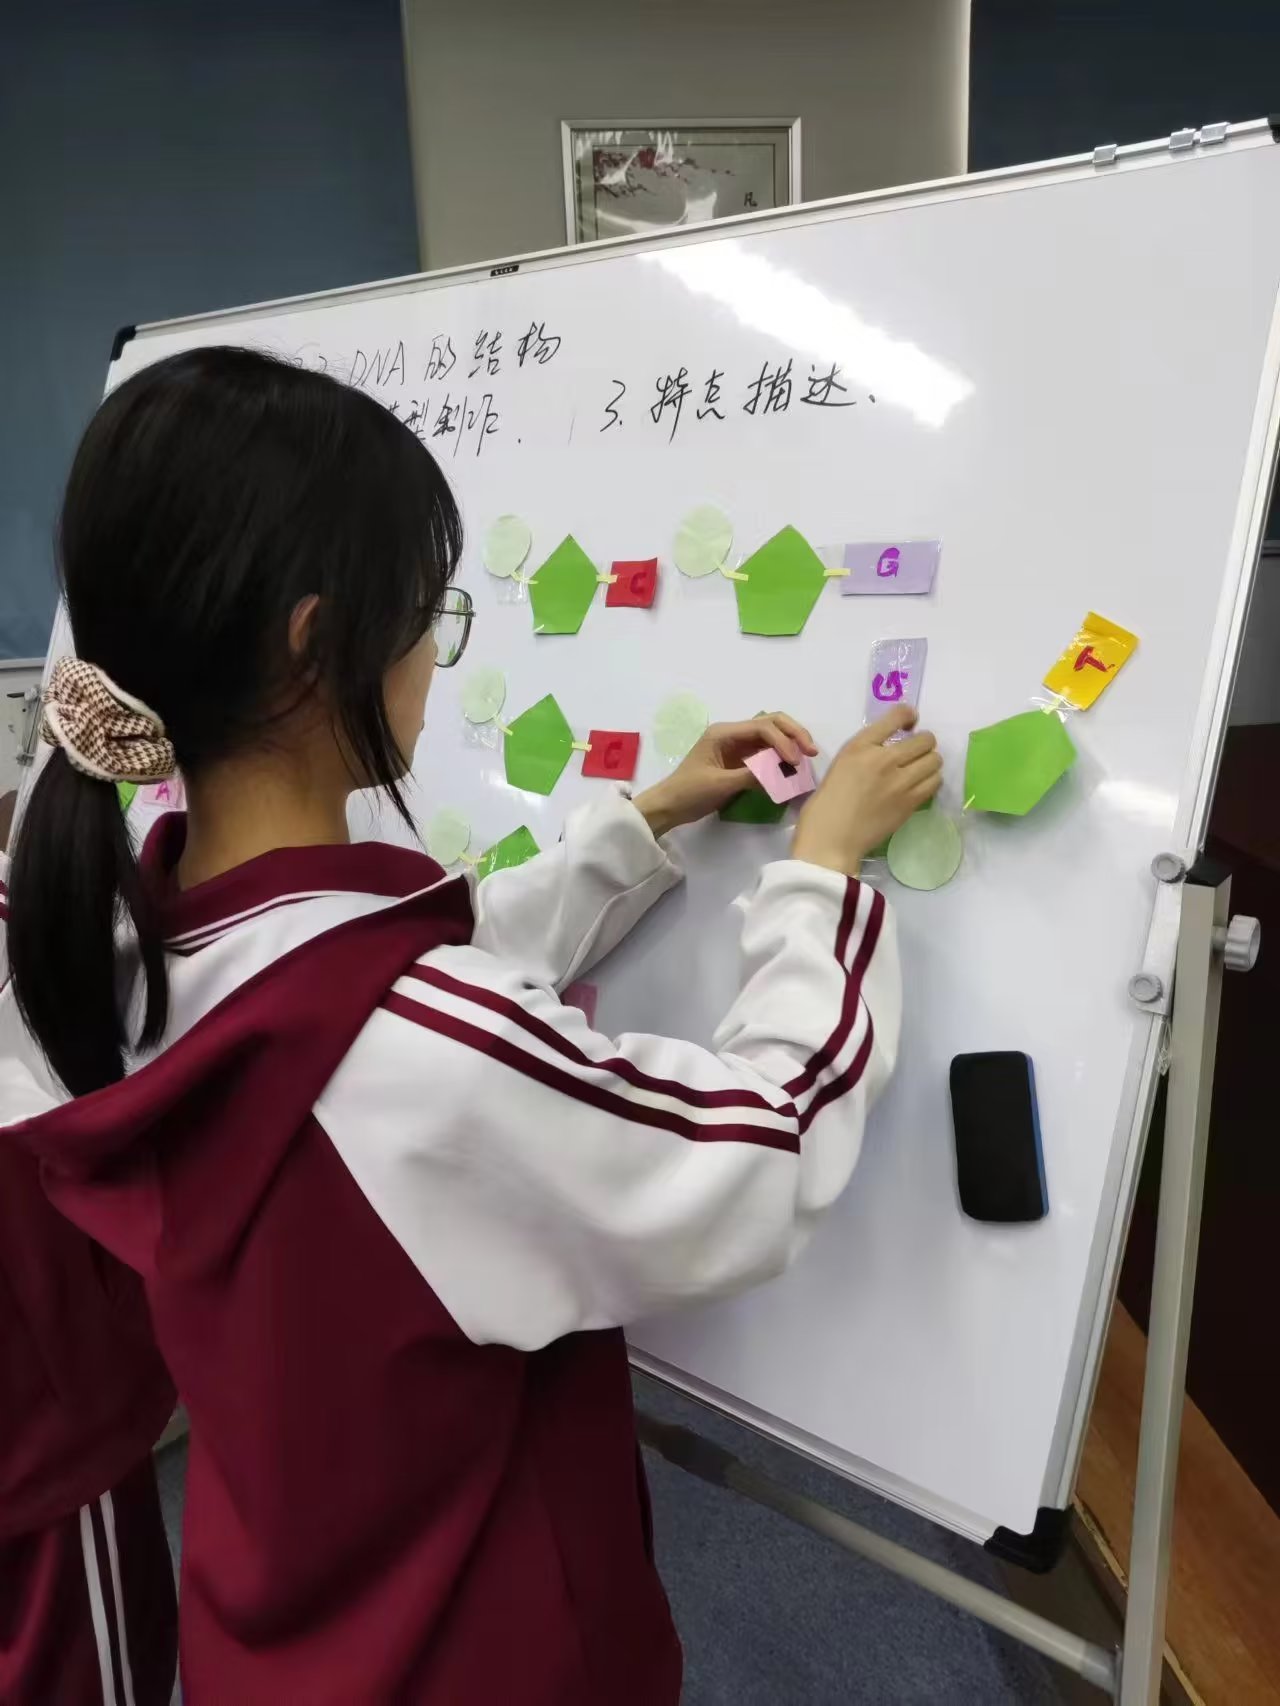 DNA的结构
型制作.
3.特点描达.
C
G
G
T
C
A